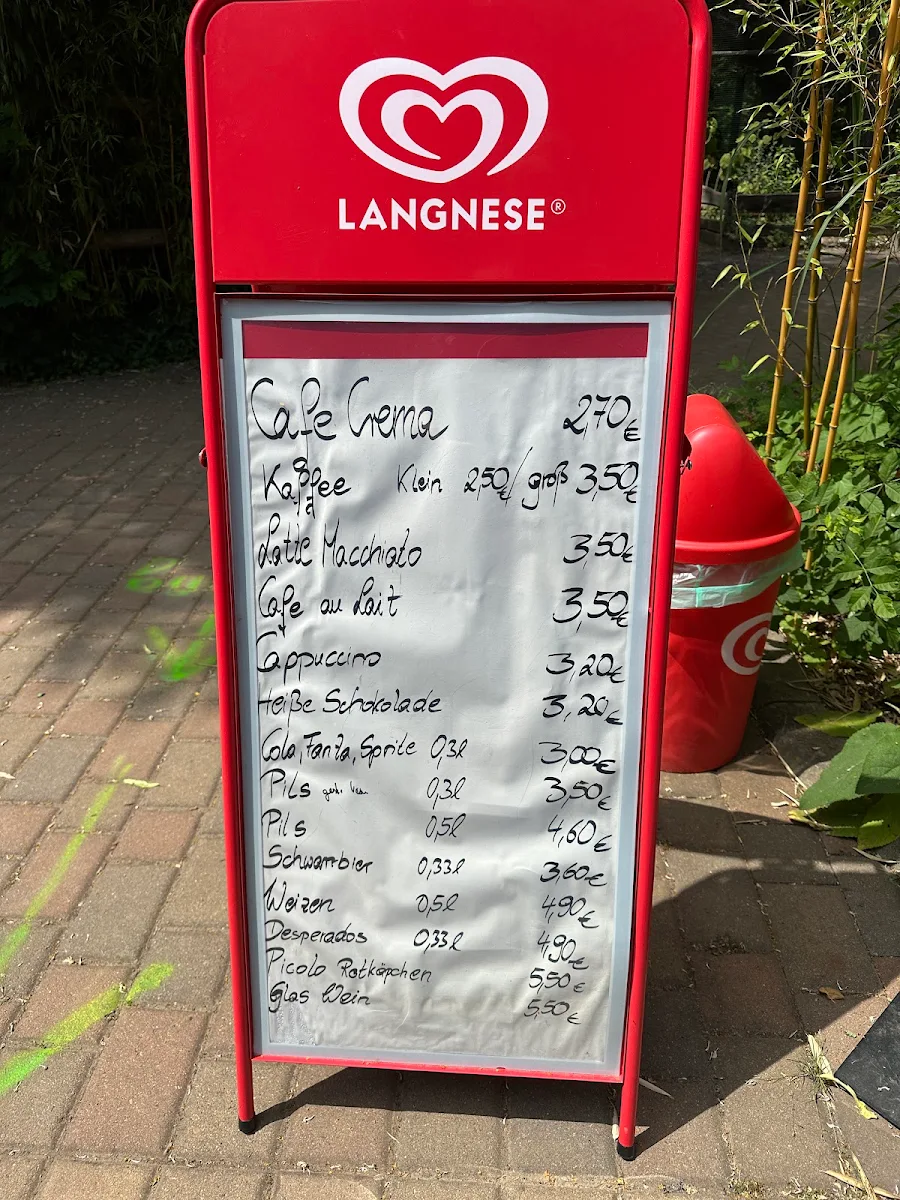 LANGNESE®
Cafe Crema 2,70€
Kaffee Klein 2,50€/groß 3,50€
Latte Macchiato 3,50€
Cafe au Lait 3,50€
Cappuccino 3,20€
Heiße Schokolade 3,20€
Cola, Fanta, Sprite 0,3l 3,00€
Pils 0,3l 3,50€
Pils 0,5l 4,60€
Schwarzbier 0,33l 3,60€
Weizen 0,5l 4,90€
Desperados 0,33l 4,90€
Picolo Rotkäpchen 5,50€
Glas Wein 5,50€